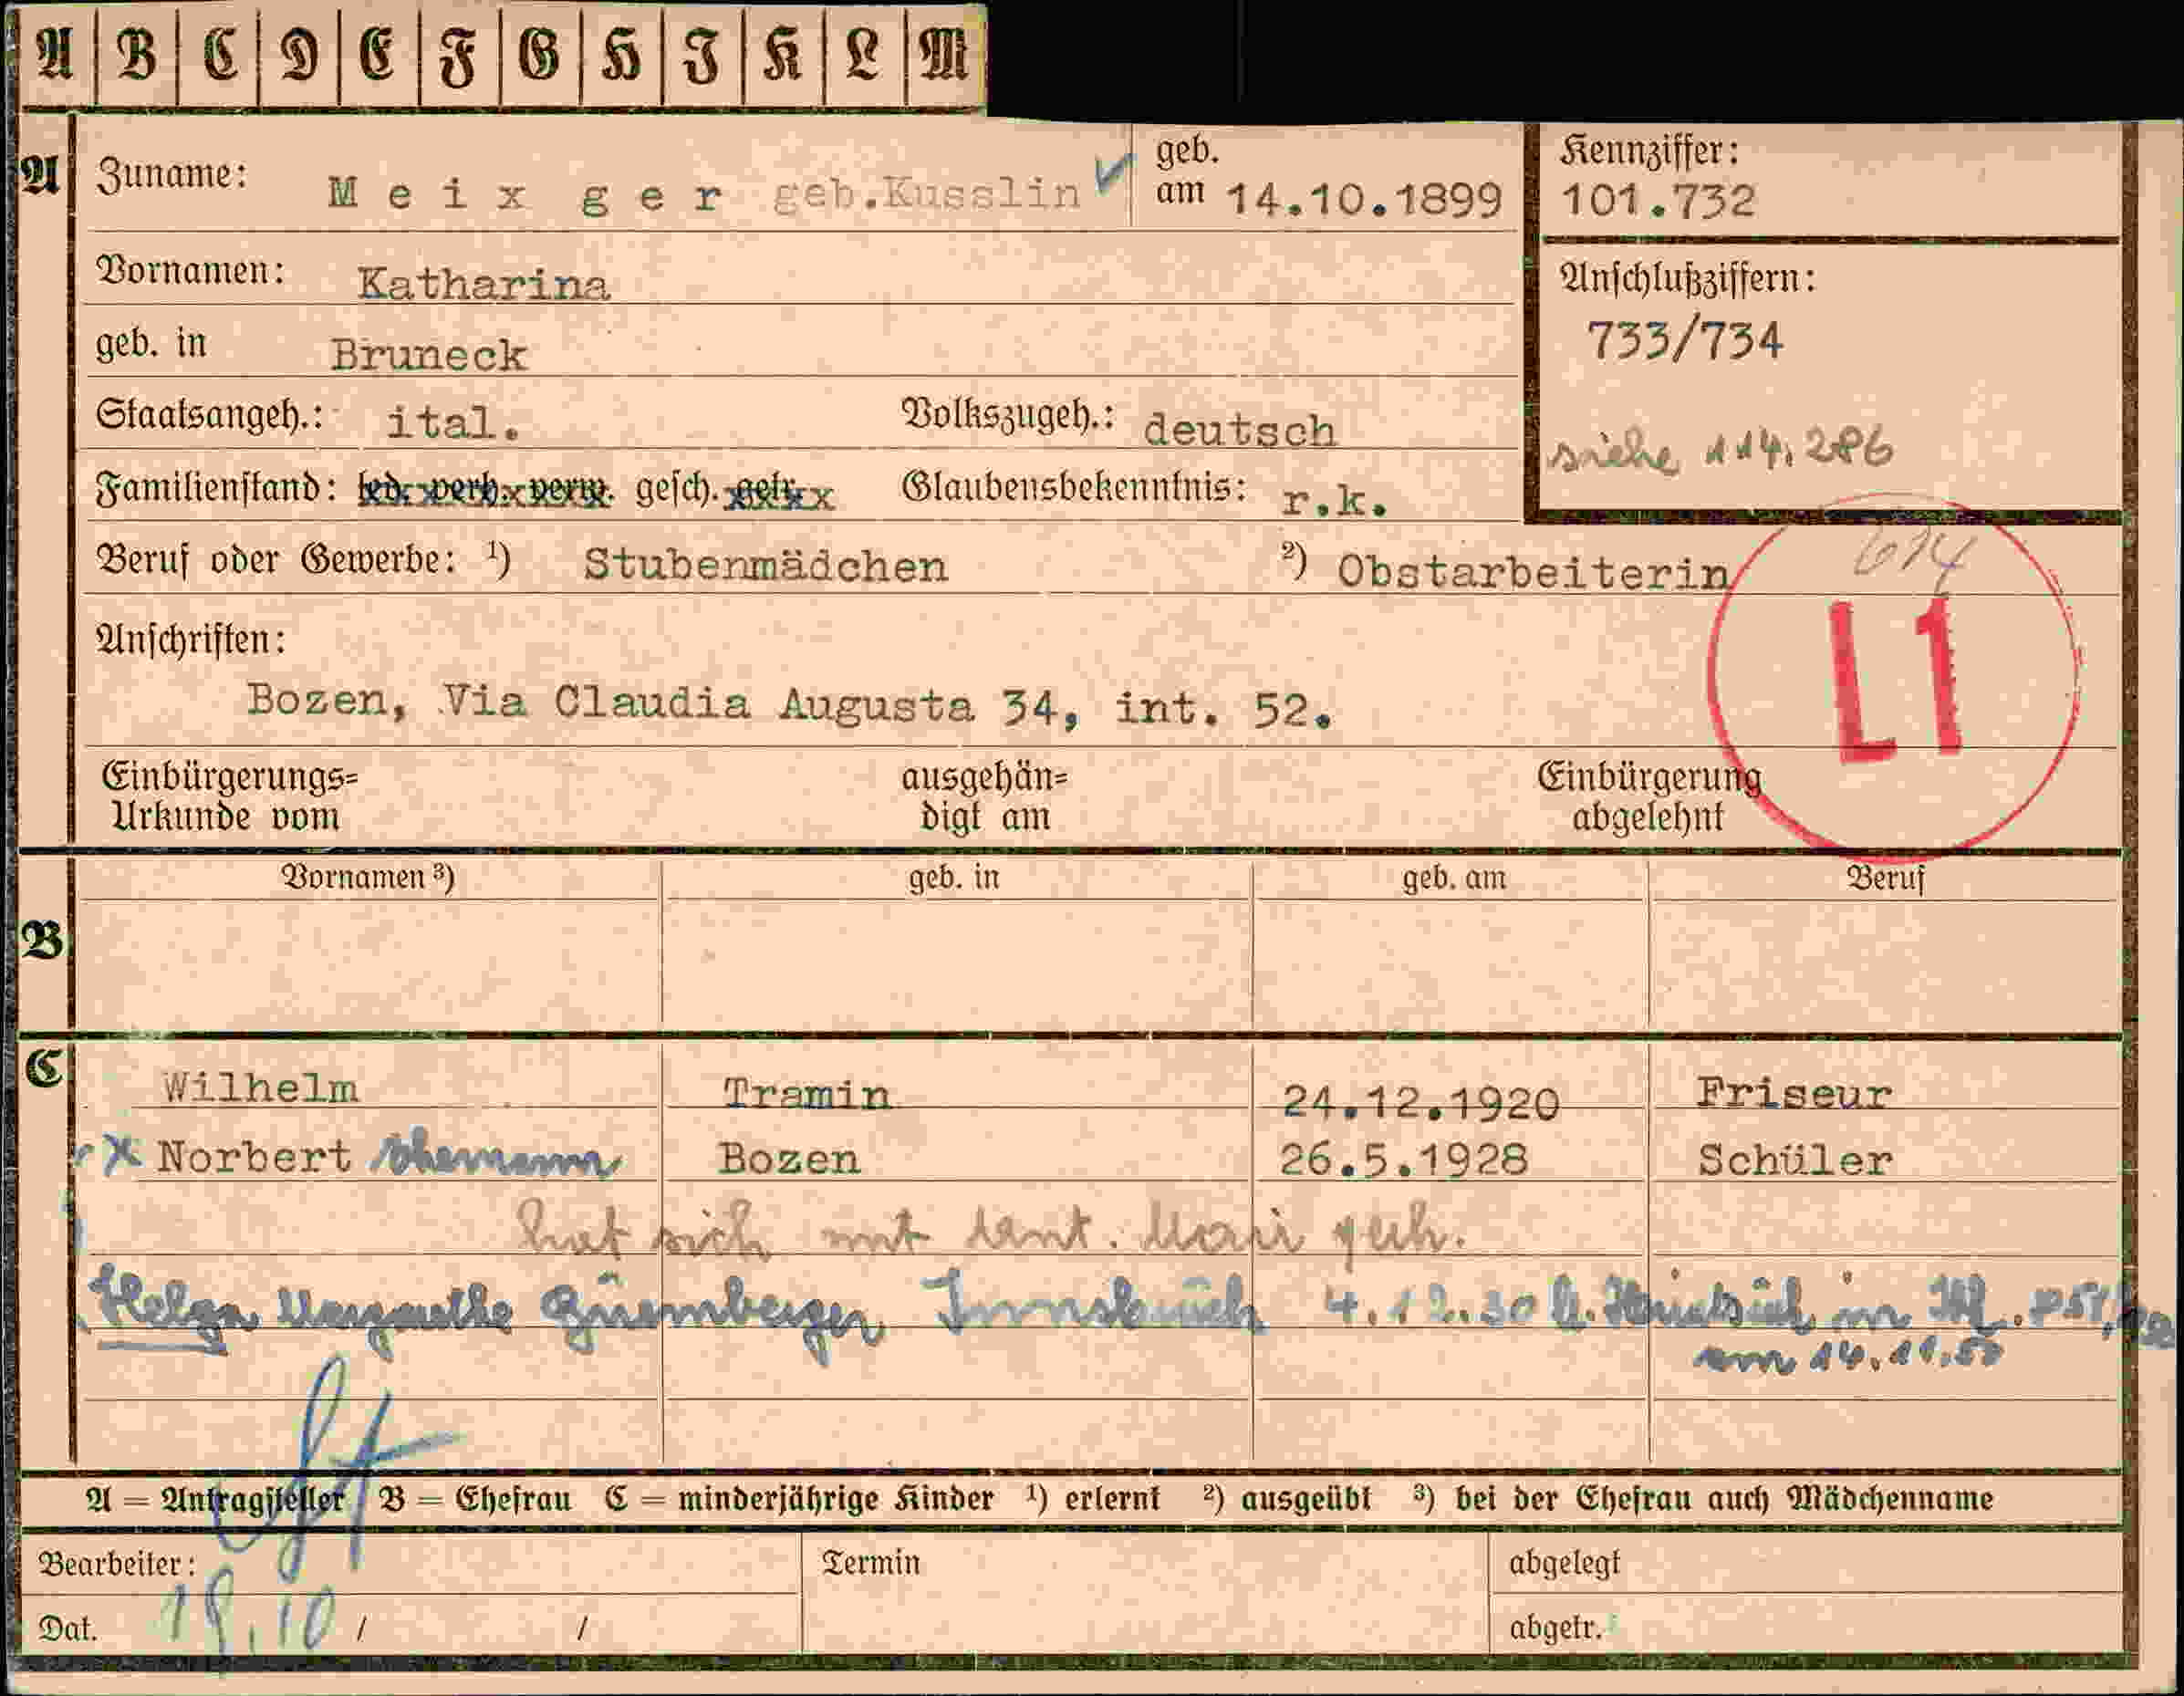 A B C D E F G H J K L M
A Zuname: Meixger geb.Kusslin geb. am 14.10.1899
Kennziffer: 101.732
Vornamen: Katharina
Anschlußziffern: 733/734
geb. in Bruneck
Staatsangeh.: ital. Volkszugeh.: deutsch
siehe 114.286
Familienstand: led. verh. verw. gesch. getr. Glaubensbekenntnis: r.k.
Beruf oder Gewerbe: ¹) Stubenmädchen ²) Obstarbeiterin
L1
Anschriften:
Bozen, Via Claudia Augusta 34, int. 52.
Einbürgerungs=
Urkunde vom
ausgehän=
digt am
Einbürgerung
abgelehnt
Vornamen ³) geb. in geb. am Beruf
B
C Wilhelm Tramin 24.12.1920 Friseur
x Norbert Bozen 26.5.1928 Schüler
hat sich mit
Helga 4.12.30
am 14.11.50
A = Antragsteller B = Ehefrau C = minderjährige Kinder ¹) erlernt ²) ausgeübt ³) bei der Ehefrau auch Mädchenname
Bearbeiter: Termin abgelegt
Dat. 18.10 / / abgetr.